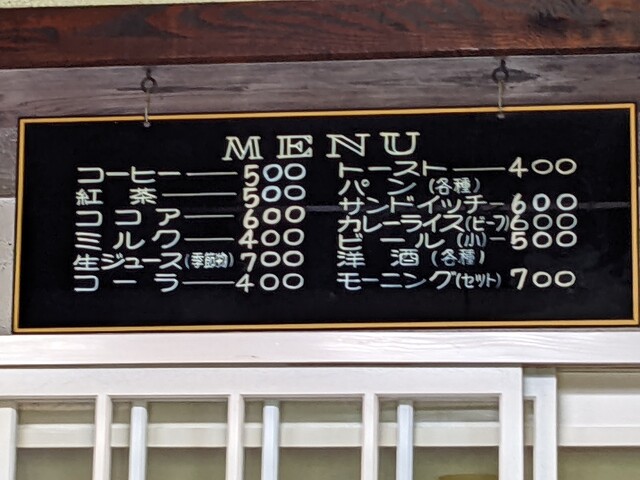 MENU
コーヒー―500
紅茶―500
ココア―600
ミルク―400
生ジュース(季節物)700
コーラ―400
トースト―400
パン(各種)
サンドイッチ―600
カレーライス(ビーフ)600
ビール(小)―500
洋酒(各種)
モーニング(セット)700